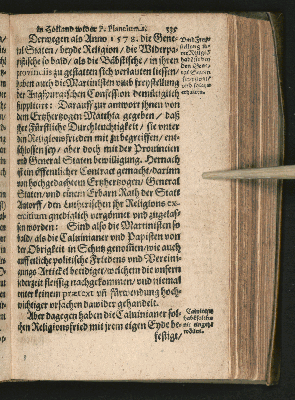 in Holland wider P. Plancium, &c. 135
Derwegen als Anno 1578. die Gene-
ral Staten / beyde Religion / die Widerpa-
pistische so bald / als die Bäbstische / in ihren
provinciis zu gestatten sich verlauten liessen/
haben auch die Martinisten umb freystellung
der Augspurgischen Confession demütiglich
suppliciert: Darauff zur antwort ihnen von
dem Ertzherzogen Matthia gegeben / daß
jhre Fürstliche Durchleuchtigkeit / sie unter
den Religionsfrieden mit zu begreiffen / ent-
schlossen sey / aber doch mit der Provincien
und General Staten bewilligung. Hernach
ist ein öffentlicher Contract gemacht / darinn
von hochgedachtem Ertzherzogen / General
Staten / und einem Erbarn Rath der Statt
Antorff / den Lutherischen ihr Religions ex-
ercitium gnediglich vergönnet und zugelas-
sen worden: Sind also die Martinisten so
bald / als die Calvinianer und Papisten von
der Obrigkeit in Schutz genommen / wie auch
auff etliche politische Friedens und Vereini-
gungs Artickel beeidiget / welchem die unsern
jederzeit fleissig nachgekommen / und niemals
unter keinem prætext uñ fürwendung hoch-
wichtiger ursachen dawider gehandelt.
Aber dagegen haben die Calvinianer sol-
chen Religionsfried mit jrem eigen Eyde be-
festigt /
Calvinianer